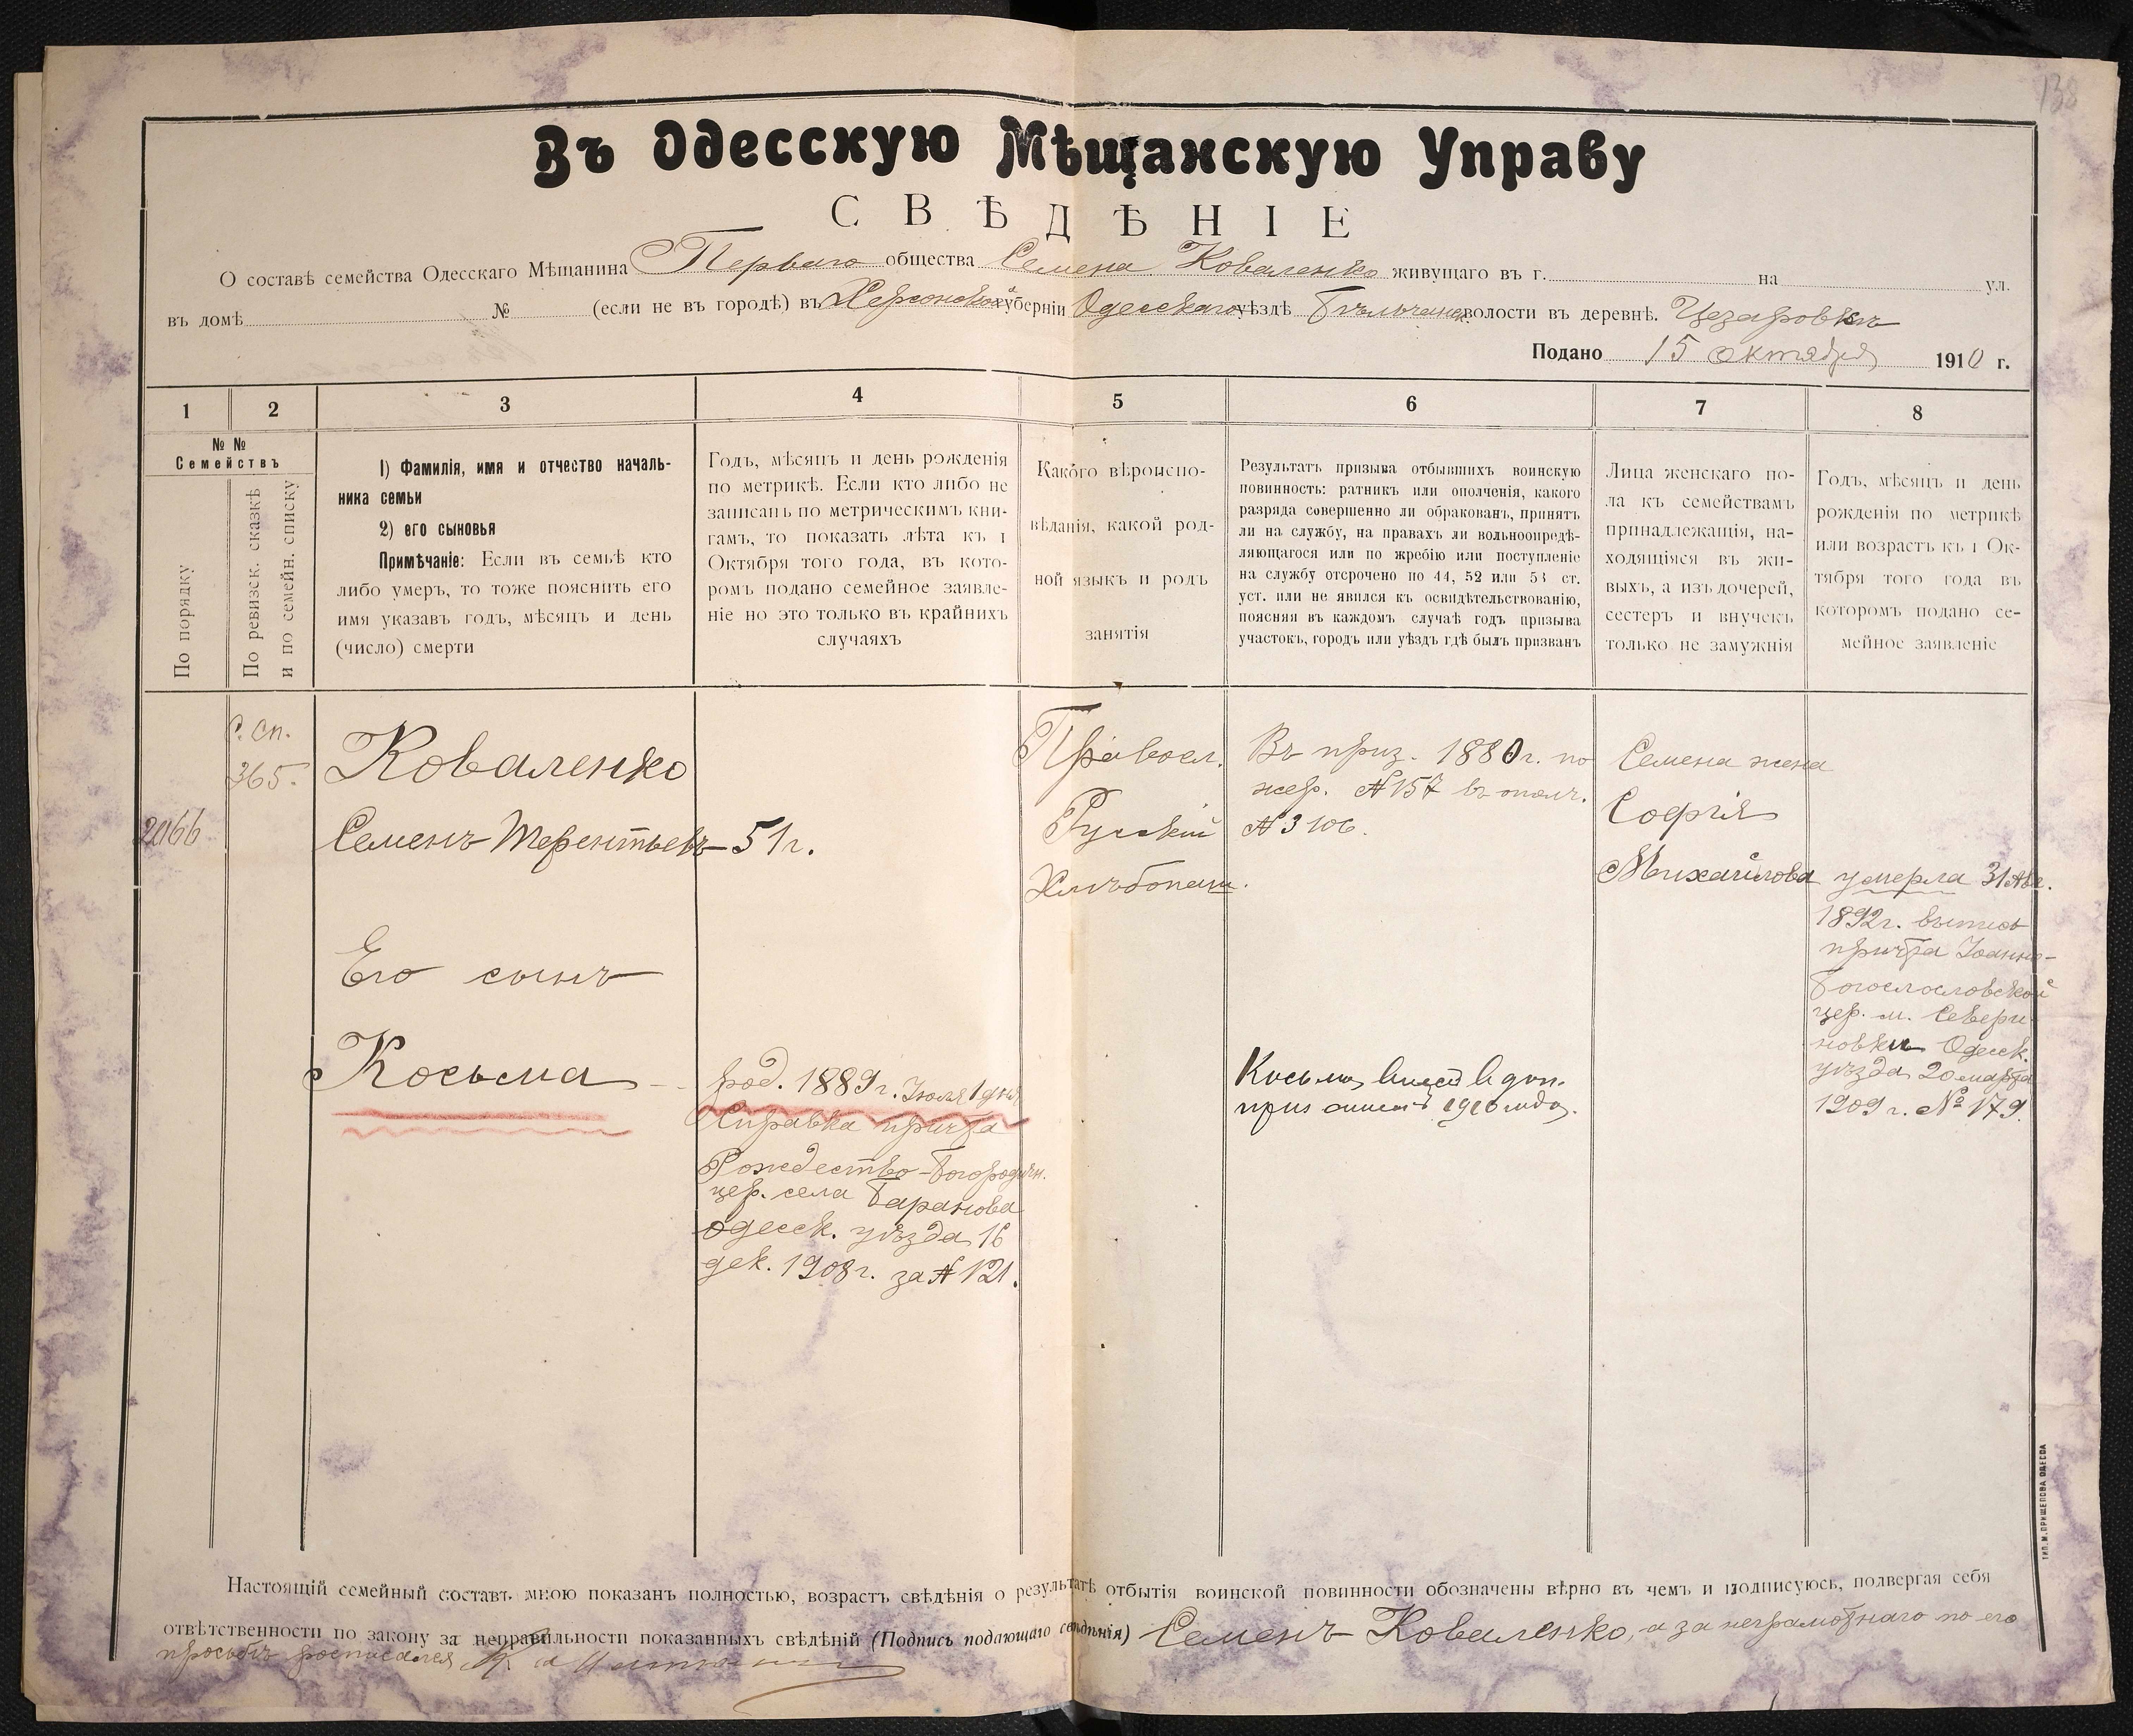 138
Въ Одесскую Мѣщанскую Управу
СВѢДѢНІЕ
О составѣ семейства Одесскаго Мѣщанина Перваго общества Семена Коваленко живущаго въ г. на ул.
въ домѣ № (если не въ городѣ) въ Херсонской губерніи Одесскаго уѣздѣ Бѣльчанс. волости въ деревнѣ. Цезаровкѣ
Подано 15 октября 1910 г.
1 2 3 4 5 6 7 8
№ №
Семействъ
По порядку
По ревизск. сказкѣ
и по семейн. списку
1) Фамилія, имя и отчество началь-
ника семьи
2) его сыновья
Примѣчаніе: Если въ семьѣ кто
либо умеръ, то тоже пояснить его
имя указавъ годъ, мѣсяцъ и день
(число) смерти
Годъ, мѣсяцъ и день рожденія
по метрикѣ. Если кто либо не
записанъ по метрическимъ кни-
гамъ, то показать лѣта къ 1
Октября того года, въ кото-
ромъ подано семейное заявле-
ніе но это только въ крайнихъ
случаяхъ
Какого вѣроиспо-
вѣданія, какой род-
ной языкъ и родъ
занятія
Результатъ призыва отбывшихъ воинскую
повинность: ратникъ или ополченія, какого
разряда совершенно ли обракованъ, принятъ
ли на службу, на правахъ ли вольноопредѣ-
ляющагося или по жребію или поступленіе
на службу отсрочено по 44, 52 или 53 ст.
уст. или не явился къ освидѣтельствованію,
поясняя въ каждомъ случаѣ годъ призыва
участокъ, городъ или уѣздъ гдѣ былъ призванъ
Лица женскаго по-
ла къ семействамъ
принадлежащія, на-
ходящіяся въ жи-
выхъ, а изъ дочерей,
сестеръ и внучекъ
только не замужнія
Годъ, мѣсяцъ и день
рожденія по метрикѣ
или возрастъ къ 1 Ок-
тября того года въ
которомъ подано се-
мейное заявленіе
2066
С. сп.
365.
Коваленко
Семенъ Терентьевъ — 51 г.
Его сынъ
Косьма
род. 1889 г. Іюля 1 дня
Справка причта
Рождество-Богородичн.
цер. села Баранова
Одесск. уѣзда 16
дек. 1908 г. за № 121.
Правосл.
Русскій
Хлѣбопаш.
Въ приз. 1880 г. по
жер. № 157 въ ополч.
№ 3106.
Косьма внесен в доп.
приз 1910 года.
Семена жена
Софія
Михайлова
умерла 31 Авг.
1892 г. выпись
причта Іоанно-
Богословской
цер. м. Севери-
новки Одесск.
уѣзда 20 марта
1909 г. № 179.
Настоящій семейный составъ мною показанъ полностью, возрастъ свѣдѣнія о результатѣ отбытія воинской повинности обозначены вѣрно въ чемъ и подписуюсь, подвергая себя
отвѣтственности по закону за неправильности показанныхъ свѣдѣній (Подпись подающаго свѣдѣнія) Семенъ Коваленко, а за неграмотнаго по его
просьбѣ росписался
ТИП. М. ПРИЩЕПОВА ОДЕССА